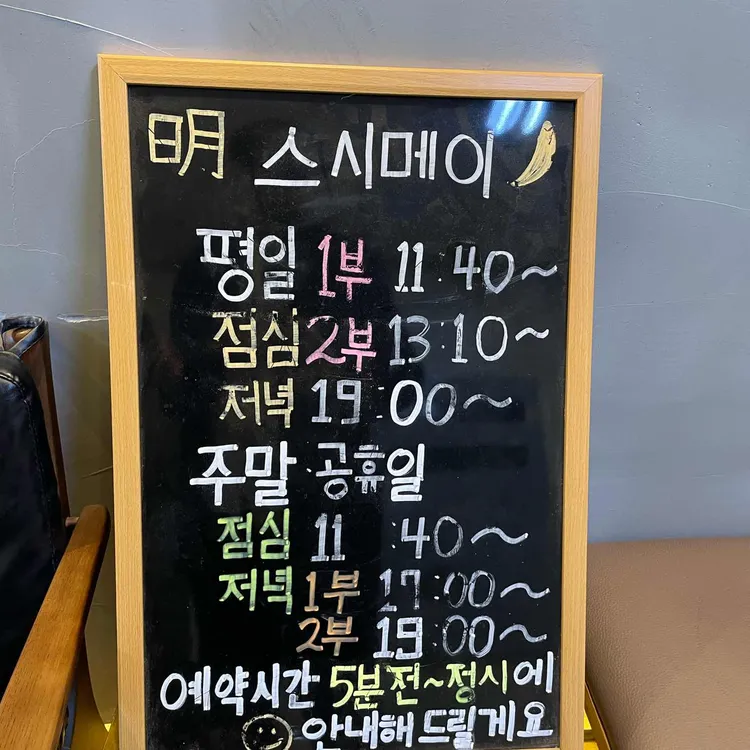 明 스시메이
평일 1부 11:40~
점심 2부 13:10~
저녁 19:00~
주말 공휴일
점심 11:40~
저녁 1부 17:00~
2부 19:00~
예약시간 5분전~정시에
안내해드릴게요